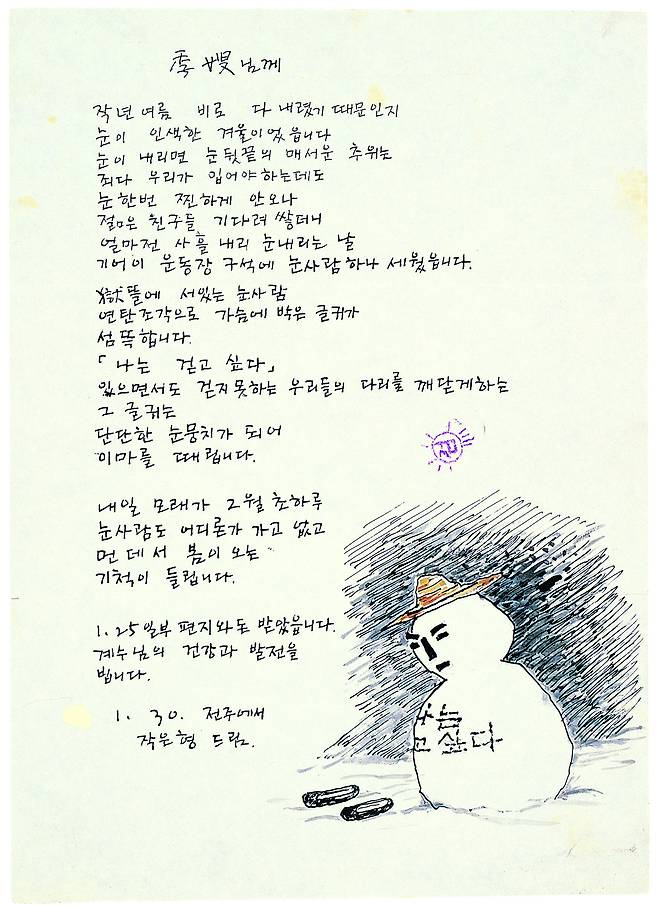 季嫂님께
작년 여름 비로 다 내렸기 때문인지
눈이 인색한 겨울이었읍니다
눈이 내리면 눈 뒷끝의 매서운 추위는
죄다 우리가 입어야하는데도
눈한번 찐하게 안오나
젊은 친구들 기다려 쌓더니
얼마전 사흘 내리 눈내리는 날
기어이 운동장 구석에 눈사람 하나 세웠읍니다.
獄뜰에 서있는 눈사람
연탄조각으로 가슴에 박은 글귀가
섬뜩합니다.
「나는 걷고 싶다」
있으면서도 걷지못하는 우리들의 다리를 깨닫게하는
그 글귀는
단단한 눈뭉치가 되어
이마를 때립니다.
내일 모레가 2월 초하루
눈사람도 어디론가 가고 없고
먼 데서 봄이 오는
기척이 들립니다.
1.25일부 편지와돈 받았읍니다.
계수님의 건강과 발전을
빕니다.
1. 30. 전주에서
작은형 드림.
나는
고 싶다